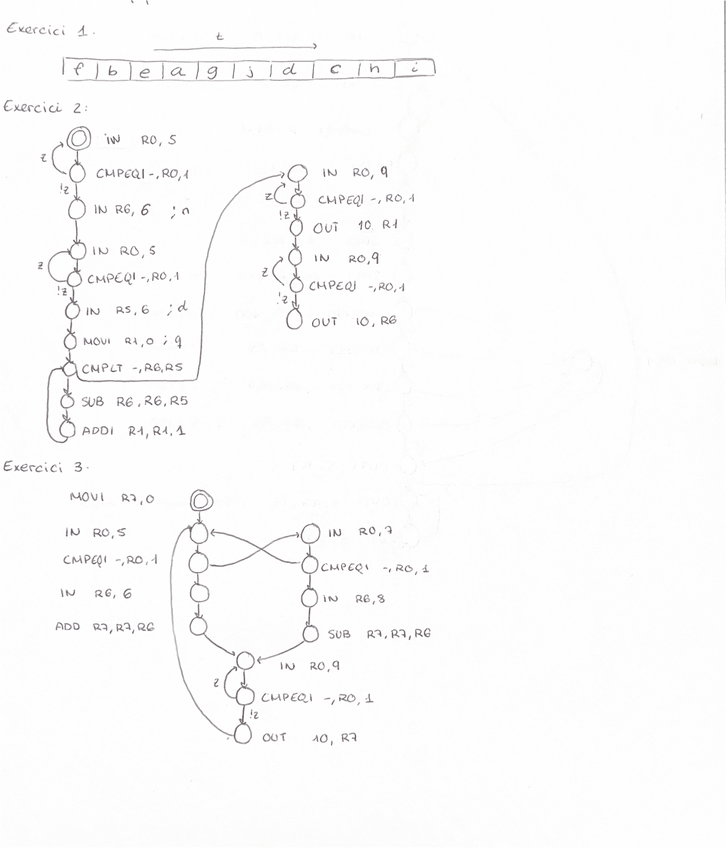 Exercici 1.
t
f | b | e | a | g | j | d | c | h | i
Exercici 2:
IN R0, 5
z
CMPEQI -, R0, 1
!z
IN R6, 6 ; n
IN R0, 5
z
CMPEQI -, R0, 1
!z
IN R5, 6 ; d
MOVI R1, 0 ; q
CMPLT -, R6, R5
SUB R6, R6, R5
ADDI R1, R1, 1
IN R0, 9
z
CMPEQI -, R0, 1
!z
OUT 10 R1
IN R0, 9
z
CMPEQI -, R0, 1
!z
OUT 10, R6
Exercici 3.
MOVI R7, 0
IN R0, 5
CMPEQI -, R0, 1
IN R6, 6
ADD R7, R7, R6
IN R0, 7
CMPEQI -, R0, 1
IN R6, 8
SUB R7, R7, R6
IN R0, 9
z
CMPEQI -, R0, 1
!z
OUT 10, R7